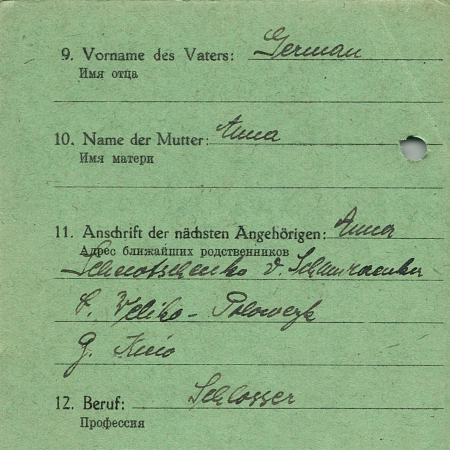 9. Vorname des Vaters: German
Имя отца
10. Name der Mutter: Anna
Имя матери
11. Anschrift der nächsten Angehörigen: Anna
Адрес ближайших родственников
d.
Veliko-
g. Kiew
12. Beruf: Schlosser
Профессия